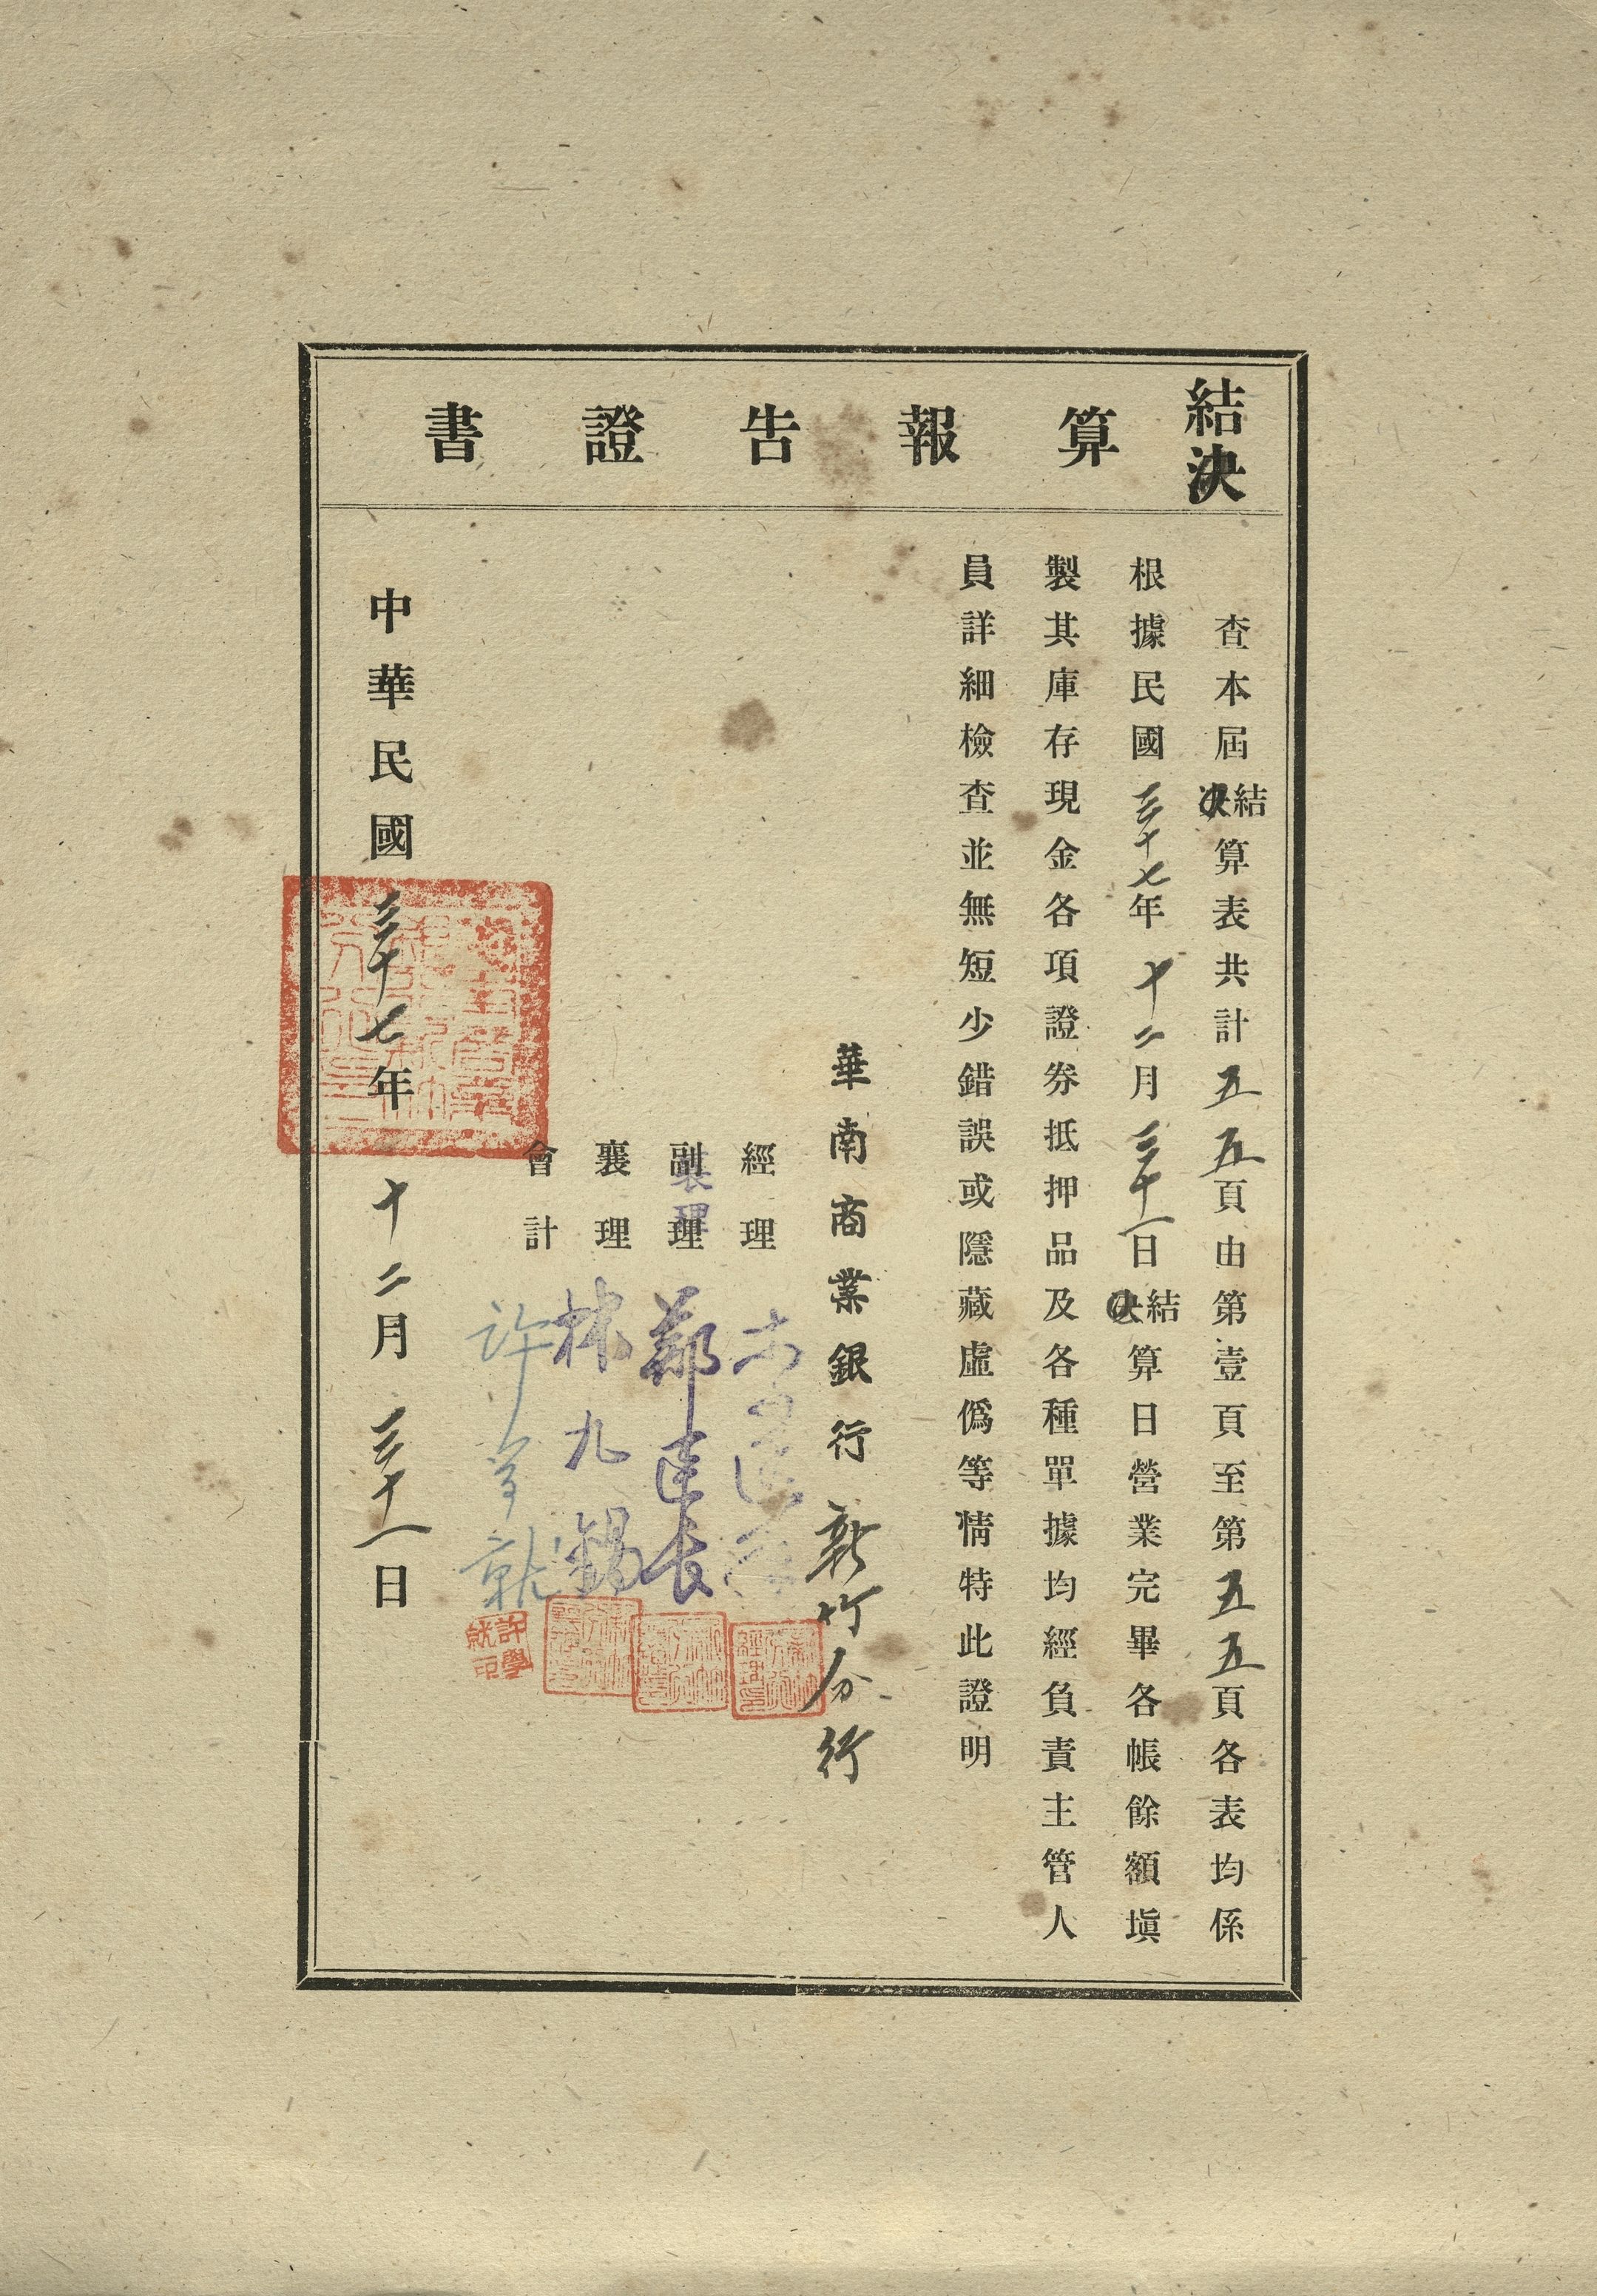 結決算報告證書
查本屆結決算表共計五五頁由第壹頁至第五五頁各表均係
根據民國三十七年十二月三十一日結決算日營業完畢各帳餘額塡
製其庫存現金各項證券抵押品及各種單據均經負責主管人
員詳細檢查並無短少錯誤或隱藏虛僞等情特此證明
華南商業銀行新竹分行
經理
副理 襄理 鄭建長
襄理 林九錫
會計 許學就
許學就印
中華民國三十七年十二月三十一日